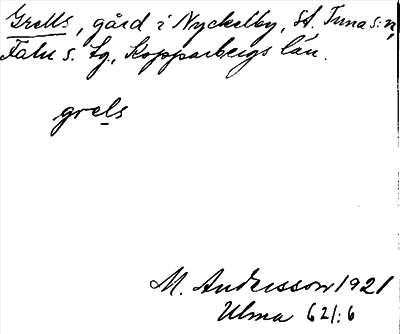 Grells, gård i Nyckelby, St. Tuna s:n,
Falu s. Lg, Kopparbergs län.
grels
M. Andersson 1921
Ulma 621:6